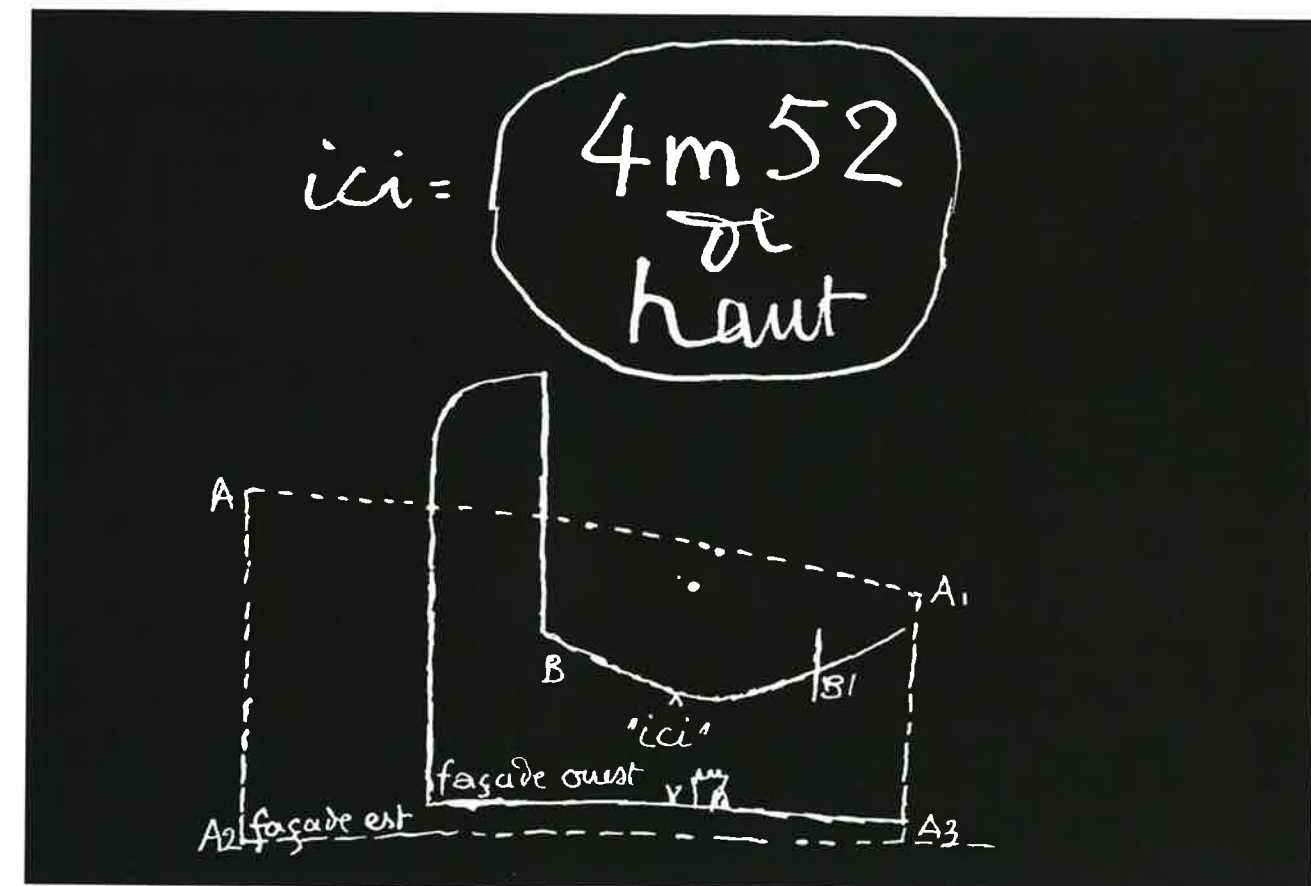 ici = 4m52
de
haut
A
A1
B
B1
"ici"
façade ouest
A2 façade est
A3